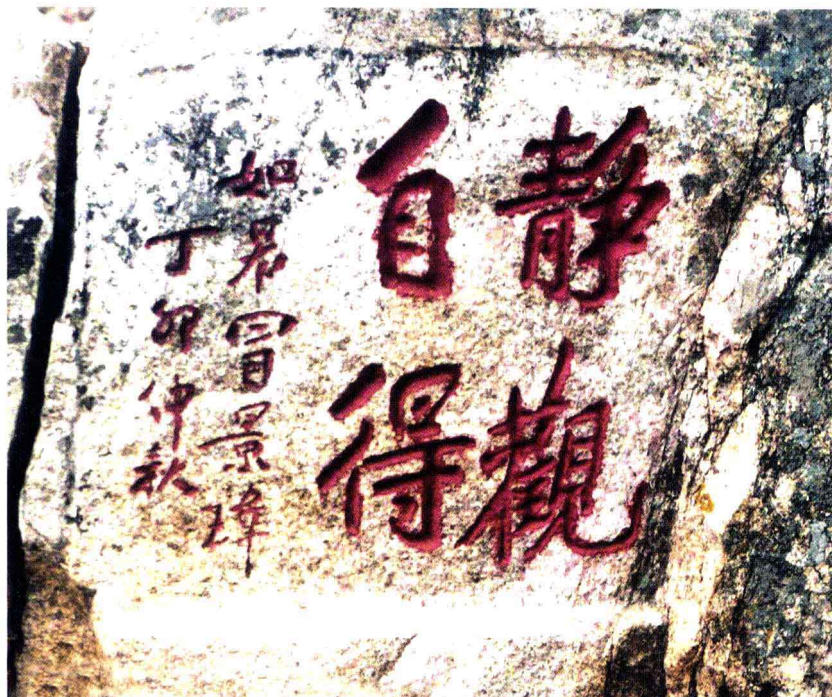 静觀
自得
如皋冒景瑋
丁卯仲秋